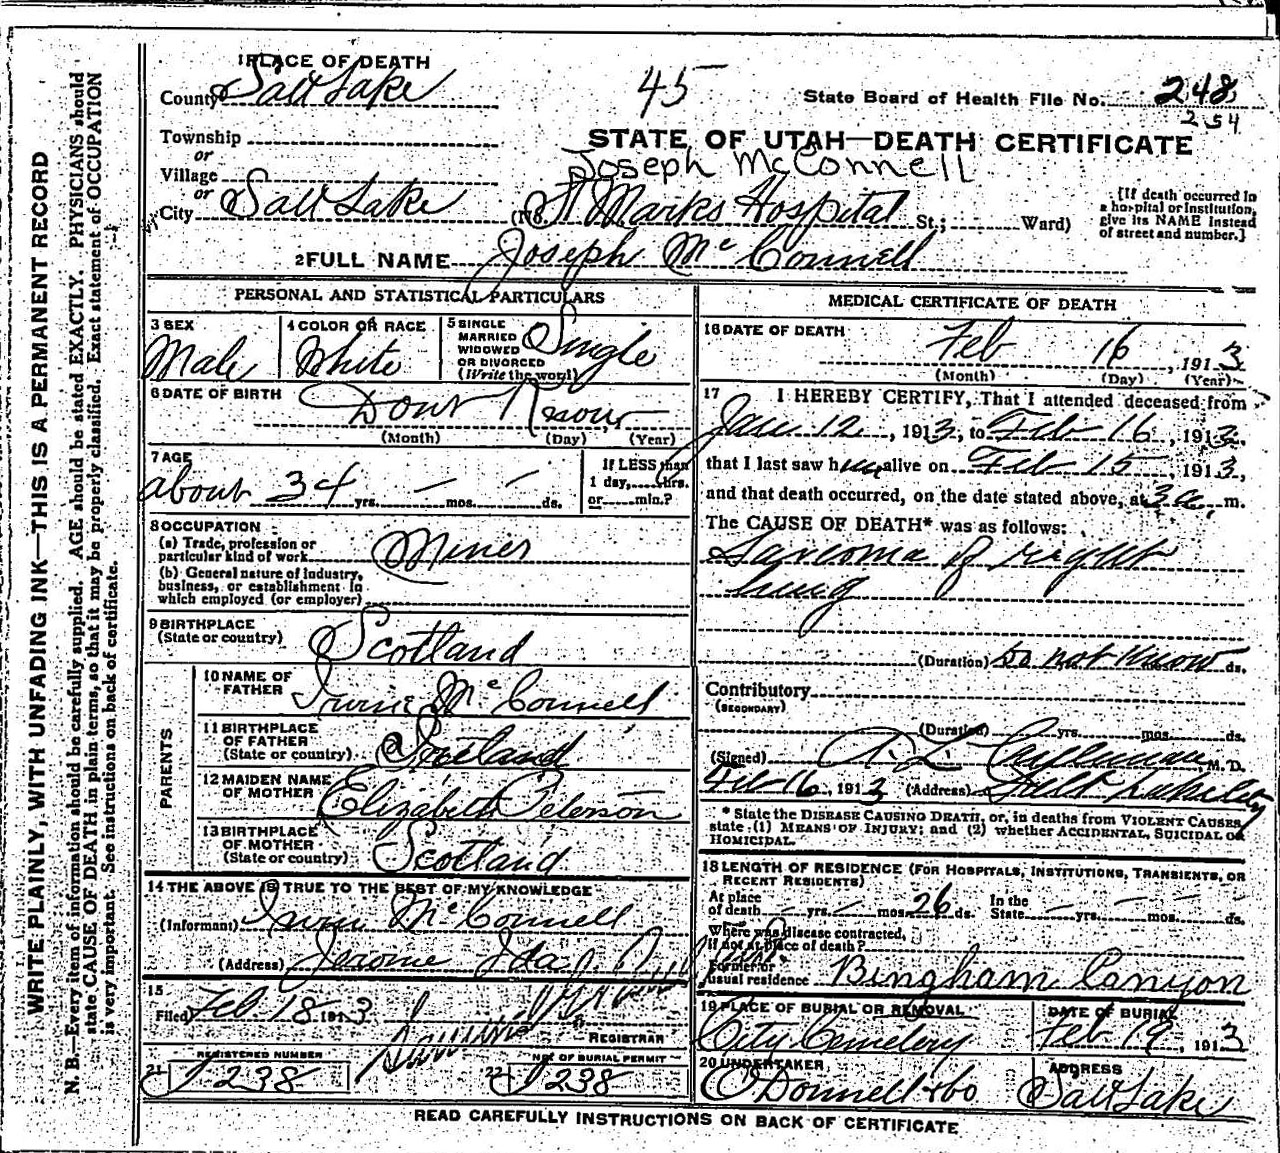 1 PLACE OF DEATH
County Salt Lake
45
State Board of Health File No. 248
254
Township
or
Village
or
City Salt Lake
STATE OF UTAH—DEATH CERTIFICATE
Joseph McConnell
(No. St Marks Hospital St.; Ward)
[If death occurred in
a hospital or institution,
give its NAME instead
of street and number.]
2 FULL NAME Joseph McConnell
PERSONAL AND STATISTICAL PARTICULARS
3 SEX
Male
4 COLOR OR RACE
White
5 SINGLE
MARRIED
WIDOWED
OR DIVORCED
(Write the word)
Single
6 DATE OF BIRTH Dont Know
(Month) (Day) (Year)
7 AGE
about 34 yrs. — mos. — ds.
If LESS than
1 day, hrs.
or min.?
8 OCCUPATION
(a) Trade, profession or
particular kind of work Miner
(b) General nature of industry,
business, or establishment in
which employed (or employer)
9 BIRTHPLACE
(State or country) Scotland
PARENTS
10 NAME OF
FATHER Irwin McConnell
11 BIRTHPLACE
OF FATHER
(State or country) Scotland
12 MAIDEN NAME
OF MOTHER Elizabeth Peterson
13 BIRTHPLACE
OF MOTHER
(State or country) Scotland
14 THE ABOVE IS TRUE TO THE BEST OF MY KNOWLEDGE
(Informant) Irwin McConnell
(Address) Jerome Ida
15
Filed Feb. 18 1913
REGISTRAR
REGISTERED NUMBER
21 J 238
NO. OF BURIAL PERMIT
22 J 238
MEDICAL CERTIFICATE OF DEATH
16 DATE OF DEATH
Feb 16, 1913
(Month) (Day) (Year)
17 I HEREBY CERTIFY, That I attended deceased from
Jan 12, 1913, to Feb 16, 1913,
that I last saw him alive on Feb 15, 1913,
and that death occurred, on the date stated above, at 3 a. m.
The CAUSE OF DEATH* was as follows:
Sarcoma of right
lung
(Duration) Do not Know ds.
Contributory
(SECONDARY)
(Duration) yrs. mos. ds.
(Signed) M. D.
Feb 16, 1913 (Address) Salt Lake City
* State the DISEASE CAUSING DEATH, or, in deaths from VIOLENT CAUSES,
state (1) MEANS OF INJURY; and (2) whether ACCIDENTAL, SUICIDAL or
HOMICIDAL.
18 LENGTH OF RESIDENCE (FOR HOSPITALS, INSTITUTIONS, TRANSIENTS, OR
RECENT RESIDENTS)
At place
of death — yrs. — mos. 26 ds.
In the
State — yrs. — mos. — ds.
Where was disease contracted,
if not at place of death?
Former or
usual residence Bingham Canyon
19 PLACE OF BURIAL OR REMOVAL
City Cemetery
DATE OF BURIAL
Feb 19, 1913
20 UNDERTAKER
O'Donnell & Co
ADDRESS
Salt Lake
READ CAREFULLY INSTRUCTIONS ON BACK OF CERTIFICATE
WRITE PLAINLY, WITH UNFADING INK—THIS IS A PERMANENT RECORD
N. B.—Every item of information should be carefully supplied. AGE should be stated EXACTLY. PHYSICIANS should
state CAUSE OF DEATH in plain terms, so that it may be properly classified. Exact statement of OCCUPATION
is very important. See instructions on back of certificate.